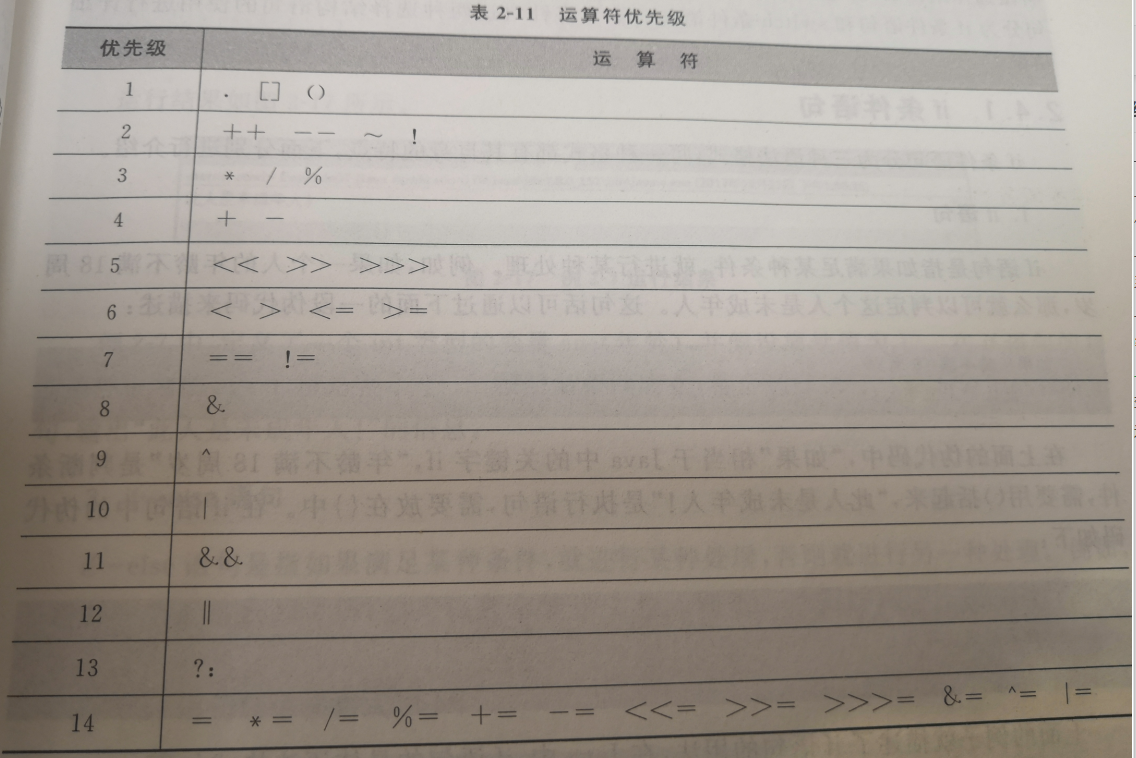 表 2-11 运算符优先级
优先级 运 算 符
1 . [] ()
2 ++ -- ~ !
3 * / %
4 + -
5 << >> >>>
6 < > <= >=
7 == !=
8 &
9 ^
10 |
11 &&
12 ||
13 ?:
14 = *= /= %= += -= <<= >>= >>>= &= ^= |=